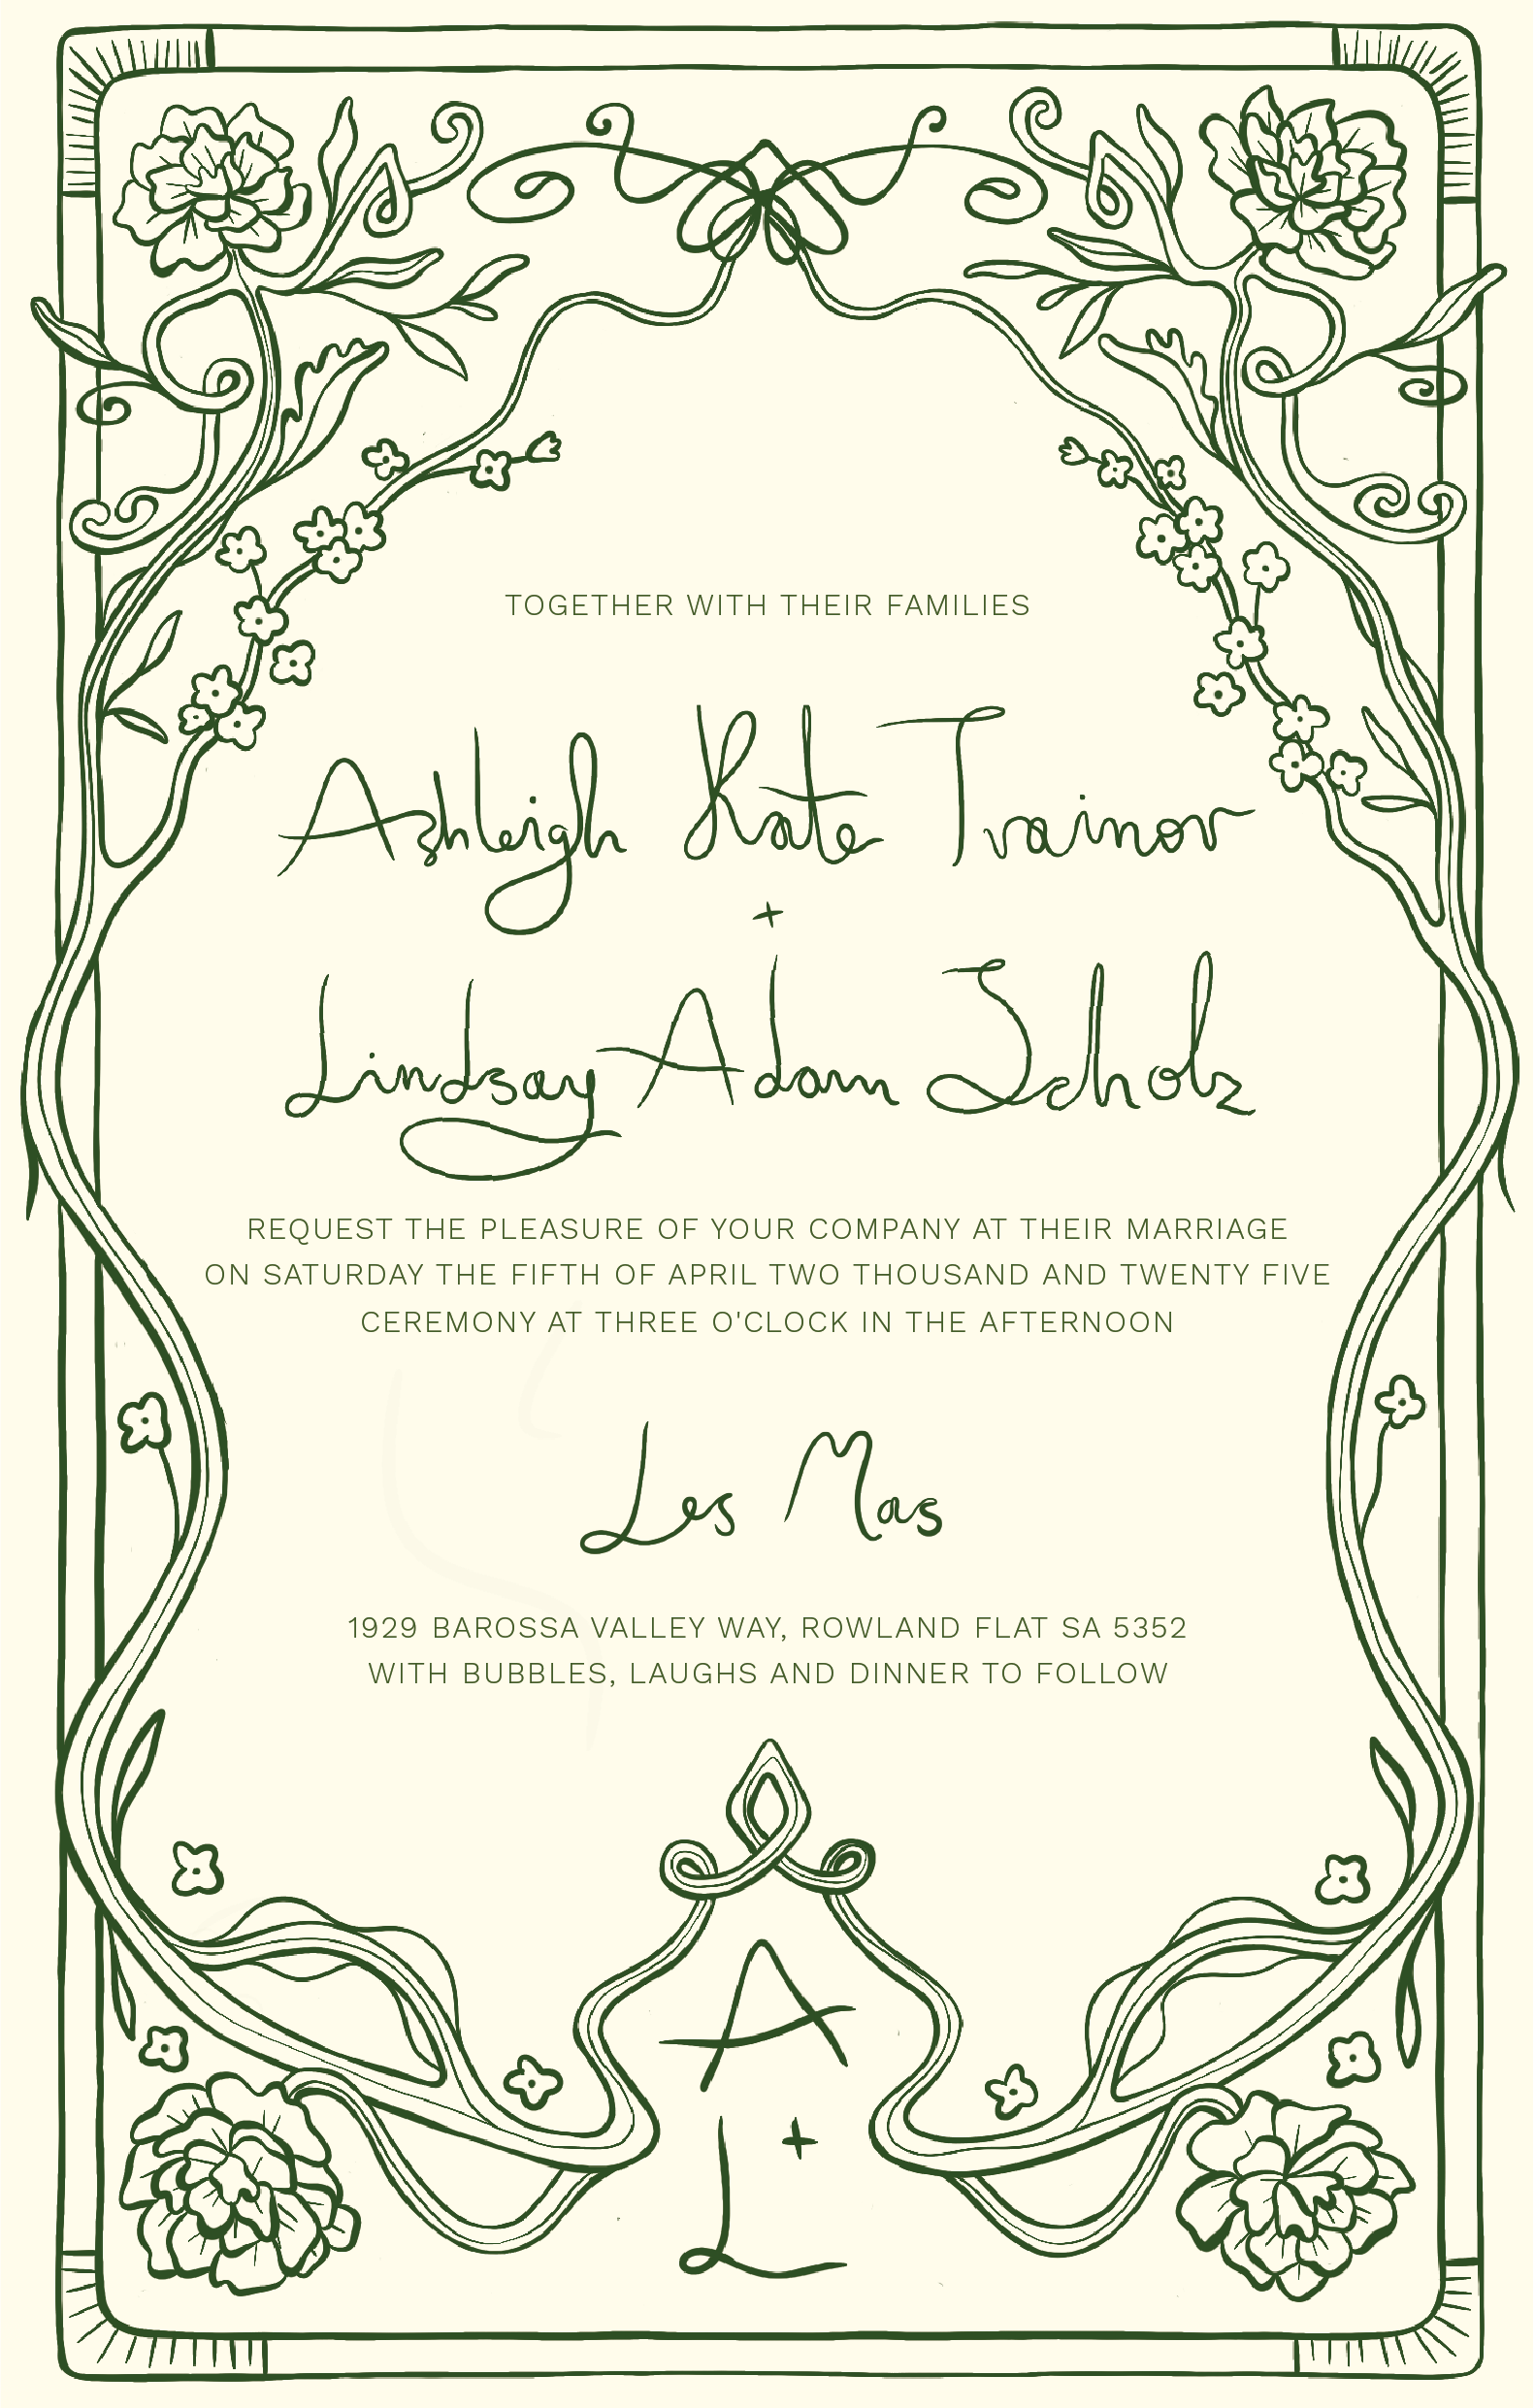 TOGETHER WITH THEIR FAMILIES
Ashleigh Kate Trainor
+
Lindsay Adam Scholz
REQUEST THE PLEASURE OF YOUR COMPANY AT THEIR MARRIAGE
ON SATURDAY THE FIFTH OF APRIL TWO THOUSAND AND TWENTY FIVE
CEREMONY AT THREE O'CLOCK IN THE AFTERNOON
Les Mas
1929 BAROSSA VALLEY WAY, ROWLAND FLAT SA 5352
WITH BUBBLES, LAUGHS AND DINNER TO FOLLOW
A
+
L